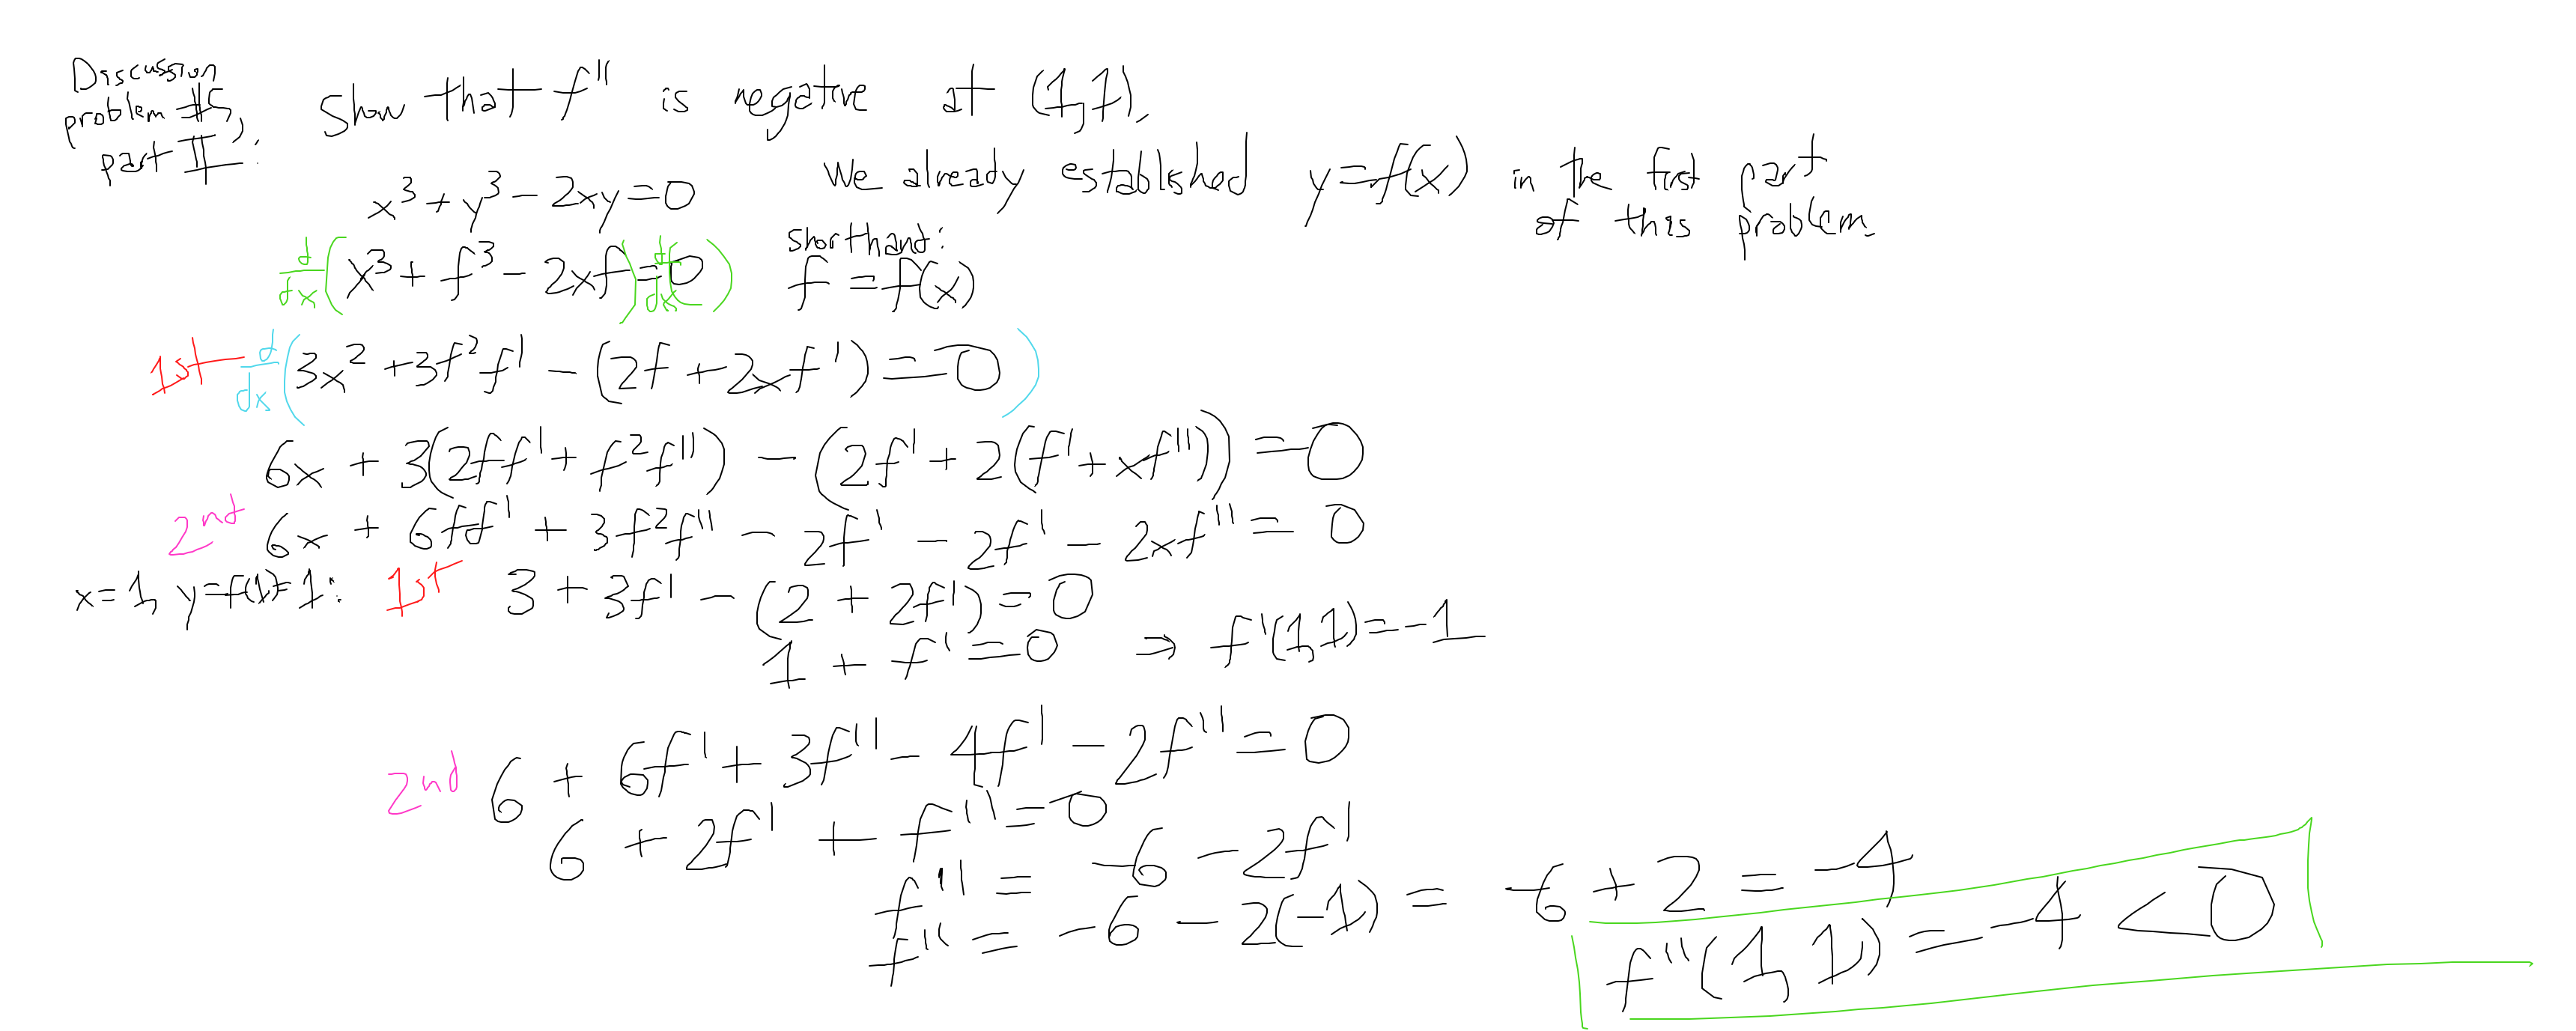 Discussion
problem #5,
part II:
Show that f'' is negative at (1,1).
We already established y=f(x) in the first part
of this problem.
x³+y³-2xy=0
shorthand:
f=f(x)
d/dx(x³+f³-2xf)=d/dx(0)
1st d/dx(3x²+3f²f'-(2f+2xf')=0)
6x+3(2ff'+f²f'')-(2f'+2(f'+xf''))=0
2nd 6x+6ff'+3f²f''-2f'-2f'-2xf''=0
x=1, y=f(1)=1: 1st 3+3f'-(2+2f')=0
1+f'=0 ⇒ f'(1,1)=-1
2nd 6+6f'+3f''-4f'-2f''=0
6+2f'+f''=0
f''=-6-2f'
f''=-6-2(-1)=-6+2=-4
f''(1,1)=-4<0